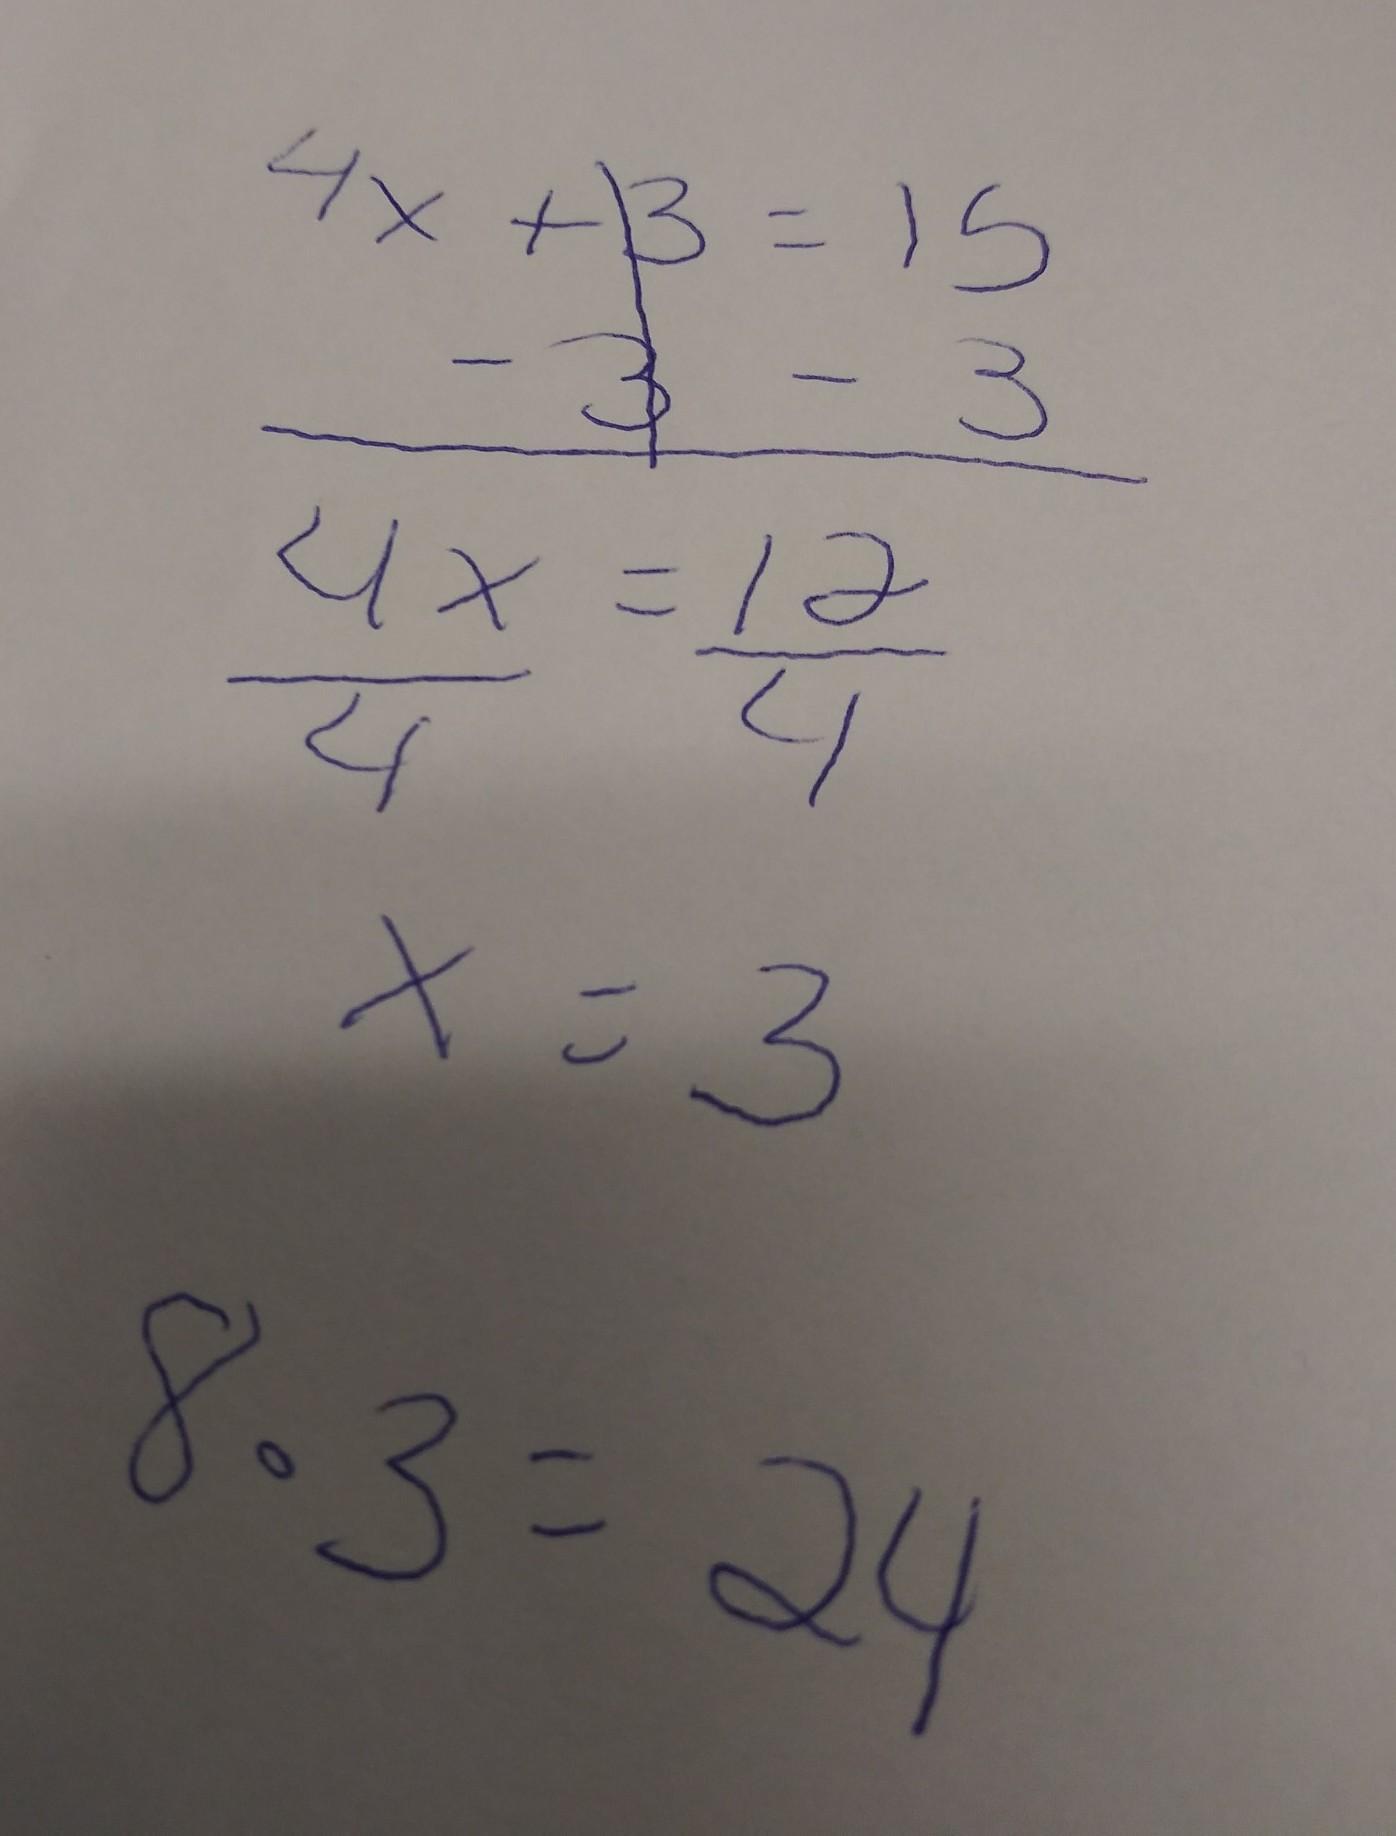 4x + 3 = 15
- 3 - 3
4x = 12
4 4
x = 3
8 . 3 = 24